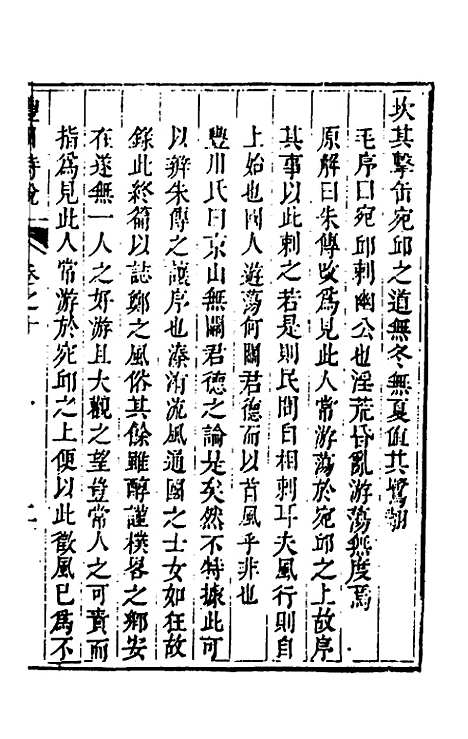 坎其擊缶宛邱之道無冬無夏值其鷺翿
毛序曰宛邱刺幽公也淫荒昏亂游蕩無度焉
原解曰朱傳改爲見此人常游蕩於宛邱之上故序
其事以此刺之若是則民間自相刺耳夫風行則自
上始也國人遊蕩何關君德而以首風乎非也
豐川氏曰京山無關君德之論是矣然不特據此可
以辨朱傳之議序也溱洧流風通國之士女如狂故
錄此終篇以誌鄭之風俗其餘雖醇謹樸畧之鄉安
在遂無一人之好游且大觀之望豈常人之可責而
指爲見此人常游於宛邱之上便以此徵風已爲不
豐川詩說
卷之十
二